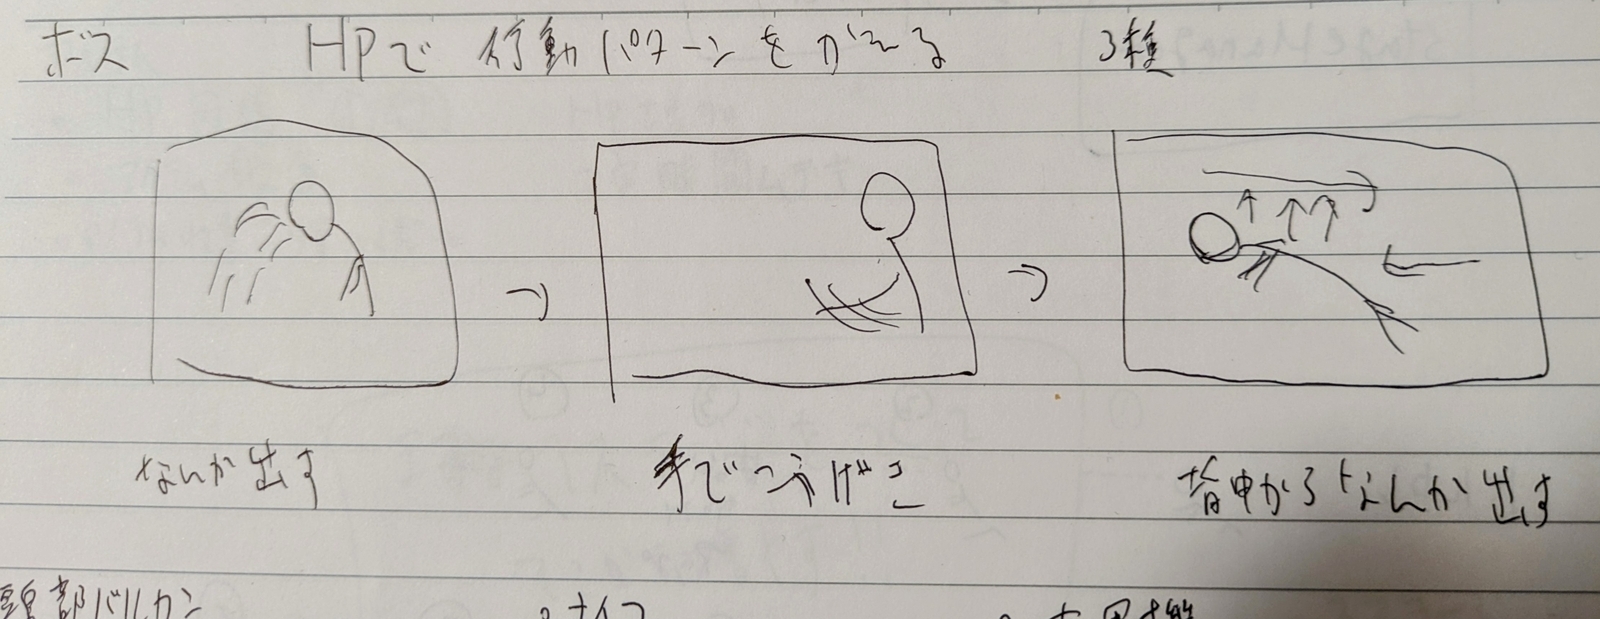 ボス HPで行動パターンをかえる 3種
なんか出す
手でこうげき
背中からなんか出す
頭部バルカン
ナイフ